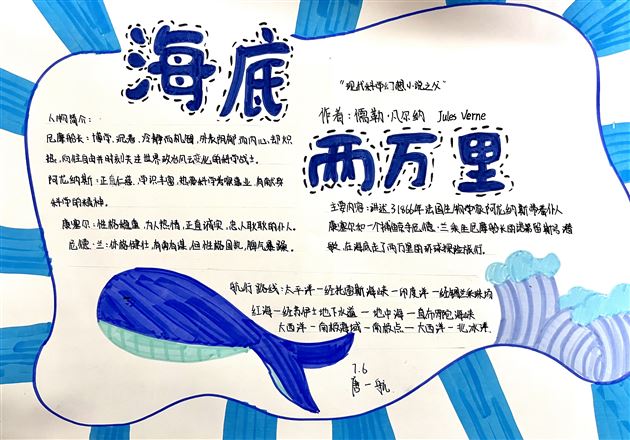 海底
两万里
"现代科学幻想小说之父"
作者：儒勒·凡尔纳 Jules Verne
人物简介：
尼摩船长：博学、沉着、冷静而机智，外表
热，向往自由并时刻关注世界政治风云变化的科学战士。
阿龙纳斯：正直仁慈，学识丰富，热爱科学考察事业，有献身
科学的精神。
康塞尔：性格稳重，为人热情，正直诚实，忠人耿耿的仆人。
尼德·兰：体格健壮，有勇有谋，但性格固执，脾气暴躁。
主要内容：讲述了1866年法国生物学家阿龙纳斯带着仆人
康塞尔和一个捕鲸手尼德·兰乘坐尼摩船长的诺第留斯号潜
艇，在海底走了两万里的环球探险旅行。
航行路线：太平洋－经托雷斯海峡－印度洋－经
红海－经苏伊士地下水道－地中海－直布罗陀海峡
大西洋－南极海域－南极点－大西洋－北冰洋
7.6
唐一航